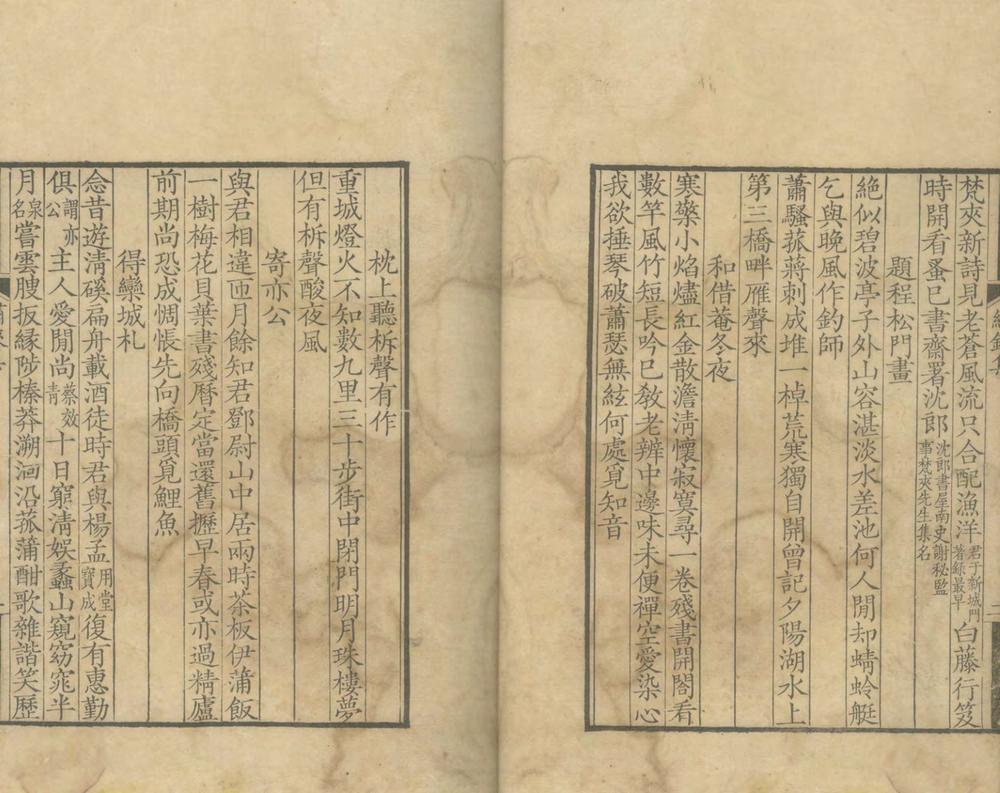 梵夾新詩見老蒼風流只合配漁洋君于新城門著錄最早白藤行笈
時開看蚤已書齋署沈郎沈郎書屋南史謝秘監事梵夾先生集名
題程松門畫
絶似碧波亭子外山容湛淡水差池何人閒却蜻蛉艇
乞與晚風作釣師
蕭騷菰蔣刺成堆一棹荒寒獨自開曾記夕陽湖水上
第三橋畔雁聲來
和借菴冬夜
寒藥小焰燼紅金散澹淸懷寂寞尋一卷殘書開閤看
數竿風竹短長吟已敎老辨中邊味未便禪空愛染心
我欲捶琴破蕭瑟無絃何處覓知音
枕上聽柝聲有作
重城燈火不知數九里三十步街中閉門明月珠樓夢
但有柝聲酸夜風
寄亦公
與君相違匝月餘知君鄧尉山中居兩時茶板伊蒲飯
一樹梅花貝葉書殘曆定當還舊攊早春或亦過精廬
前期尚恐成惆悵先向橋頭覓鯉魚
得欒城札
念昔遊淸磎扁舟載酒徒時君與楊孟用堂寶成復有惠勤
俱謂亦公主人愛閒尚蔡效靑十日窮淸娛蠡山窺窈窕半
月泉名嘗雲膄扳緣陟榛莽溯洄沿菰蒲酣歌雜諧笑歷